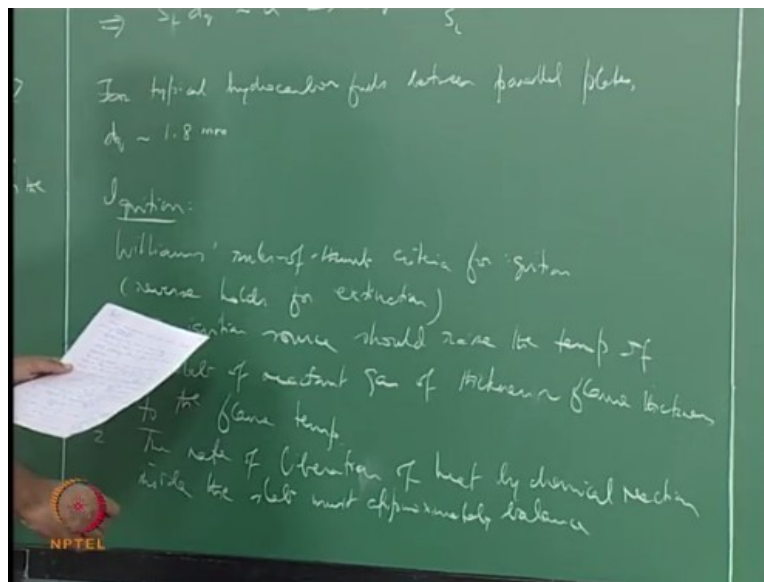 ⇒ S_L d_q ~ α ⇒ S_L
For typical hydrocarbon fuels between parallel plates,
d_q ~ 1.8 mm
in the
Ignition:
Williams' rules-of-thumb criteria for ignition
(reverse holds for extinction)
ignition source should raise the temp of
slab of reactant gas of thickness flame thickness
to the flame temp.
2 The rate of liberation of heat by chemical reaction
inside the slab must approximately balance
NPTEL